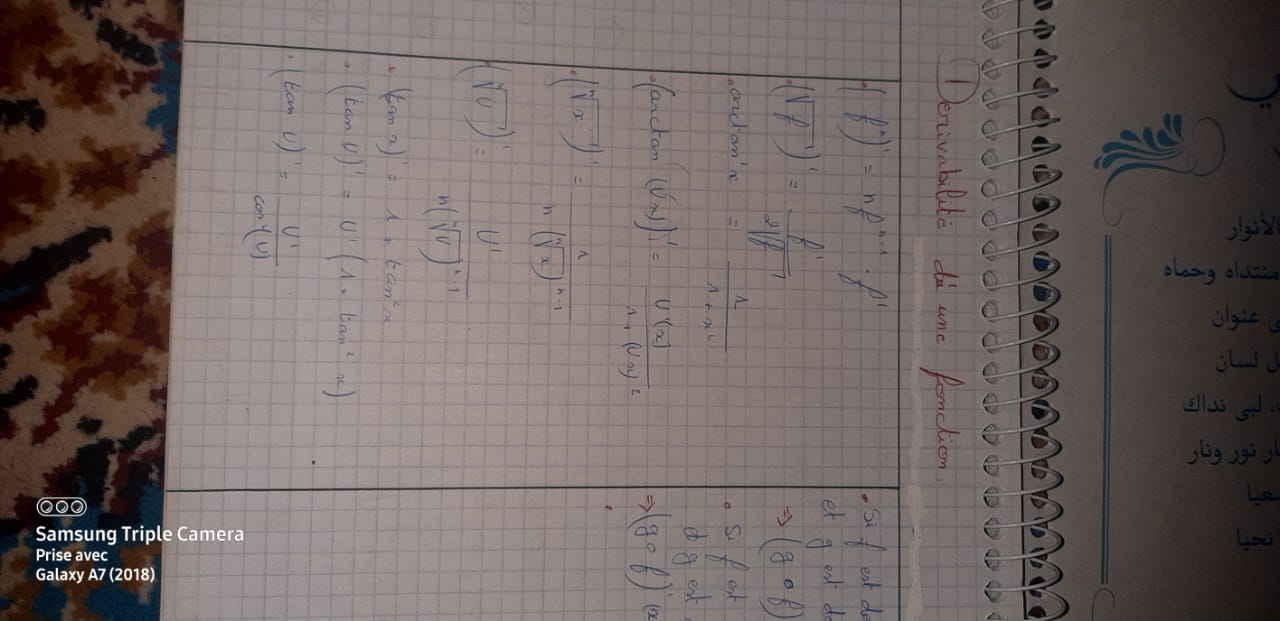 الأنوار
منتداه وحماه
عنوان
لسان
لبى نداك
نور ونار
نحيا
Derivabilité d'une fonction
. (fⁿ)' = nfⁿ⁻¹ . f'
. (√f)' = f' / 2√f
. arctan'x = 1 / 1 + x²
. (arctan (Ux))' = U'(x) / 1 + (Ux)²
. (ⁿ√x)' = 1 / n (ⁿ√x)ⁿ⁻¹
(ⁿ√U)' = U' / n(ⁿ√U)ⁿ⁻¹
. (tan x)' = 1 + tan²x
. (tan U)' = U' (1 + tan² x)
. (tan U)' = U' / cos²(U)
. Si f est de
et g est de
⇒ (g ∘ f)
. Si f est
g est
⇒ (g ∘ f)' (x
Samsung Triple Camera
Prise avec
Galaxy A7 (2018)